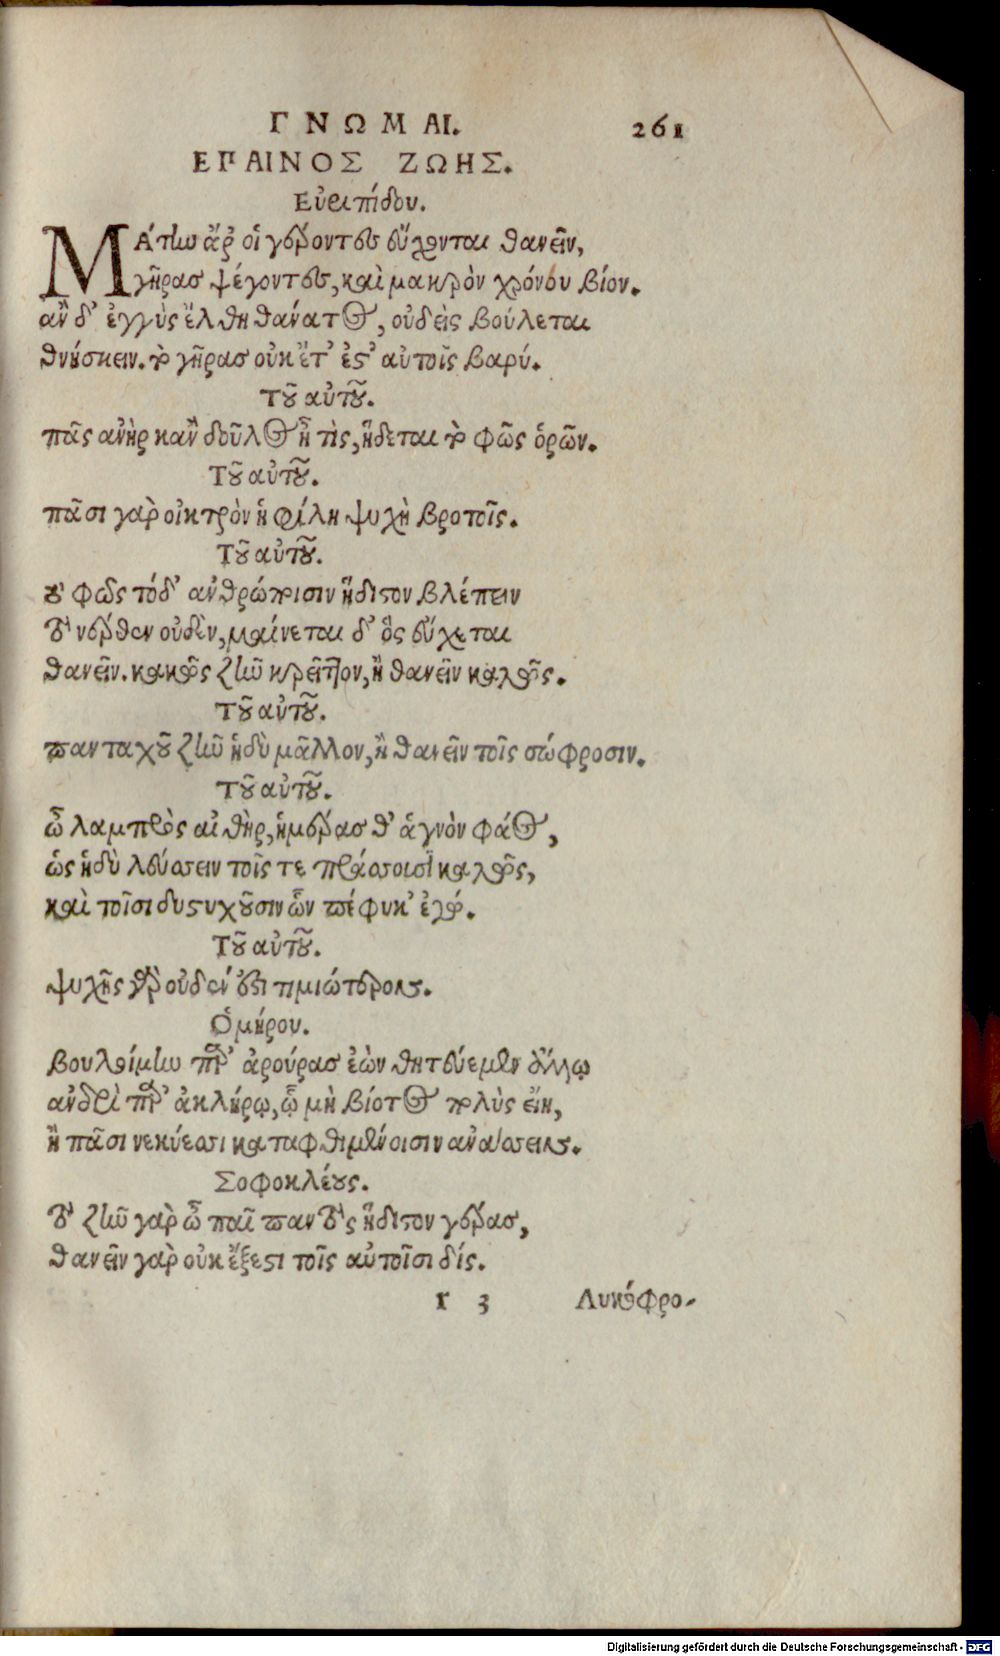 ΓΝΩΜΑΙ. 261
ΕΠΑΙΝΟΣ ΖΩΗΣ.
Εὐριπίδου.
ΜΆτην ἄρ' οἱ γέροντες εὔχονται θανεῖν,
γῆρας ψέγοντες, καὶ μακρὸν χρόνον βίου.
ἂν δ' ἐγγὺς ἔλθη θάνατος, οὐδεὶς βούλεται
θνήσκειν. τὸ γῆρας οὐκ ἔτ' ἐστ' αὐτοῖς βαρύ.
Τοῦ αὐτοῦ.
πᾶς ἀνὴρ κἂν δοῦλος ᾖ τὶς, ἥδεται τὸ φῶς ὁρῶν.
Τοῦ αὐτοῦ.
πᾶσι γὰρ οἰκτρὸν ἡ φίλη ψυχὴ βροτοῖς.
Τοῦ αὐτοῦ.
τὸ φῶς τόδ' ἀνθρώποισιν ἥδιστον βλέπειν
τὰ νέρθεν οὐδὲν, μαίνεται δ' ὃς εὔχεται
θανεῖν. κακῶς ζῆν κρεῖττον, ἢ θανεῖν καλῶς.
Τοῦ αὐτοῦ.
πανταχοῦ ζῆν ἡδὺ μᾶλλον, ἢ θανεῖν τοῖς σώφροσιν.
Τοῦ αὐτοῦ.
ὦ λαμπρὸς αἰθὴρ, ἡμέρας θ' ἁγνὸν φάος,
ὡς ἡδὺ λεύσσειν τοῖς τε πράσσουσι καλῶς,
καὶ τοῖσι δυστυχοῦσιν ὧν πέφυκ' ἐγώ.
Τοῦ αὐτοῦ.
ψυχῆς γὰρ οὐδέν ἐστι τιμιώτερον.
Ὁμήρου.
βουλοίμην παρ' ἀρούρας ἐὼν θητευέμεν ἄλλῳ
ἀνδρὶ παρ' ἀκλήρῳ, ᾧ μὴ βίοτος πολὺς εἴη,
ἢ πᾶσι νεκύεσσι καταφθιμένοισιν ἀνάσσειν.
Σοφοκλέους.
τοῦ ζῆν γὰρ ὦ παῖ παντὸς ἥδιστον γέρας,
θανεῖν γὰρ οὐκ ἔξεστι τοῖς αὐτοῖσι δίς.
r 3 Λυκόφρο-
Digitalisierung gefördert durch die Deutsche Forschungsgemeinschaft - DFG